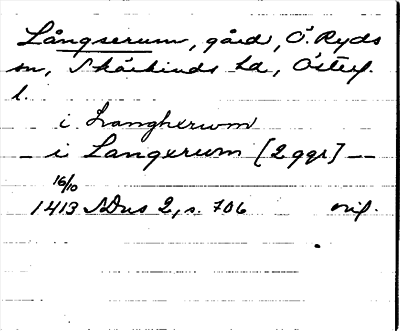 Långserum, gård, Ö. Ryds
sn, Skärkinds hd, Österg.
l.
i Langherum
— i Langerum [2 ggr] —
16/10
1413 SDns 2, s. 706 orig.